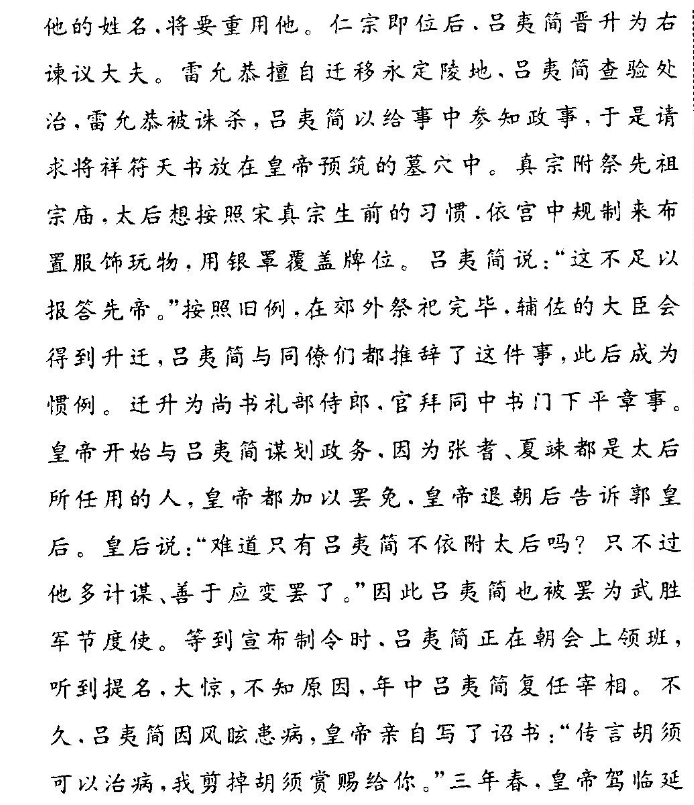 他的姓名,将要重用他。仁宗即位后,吕夷简晋升为右
谏议大夫。雷允恭擅自迁移永定陵地,吕夷简查验处
治,雷允恭被诛杀,吕夷简以给事中参知政事,于是请
求将祥符天书放在皇帝预筑的墓穴中。真宗附祭先祖
宗庙,太后想按照宋真宗生前的习惯,依宫中规制来布
置服饰玩物,用银罩覆盖牌位。吕夷简说:“这不足以
报答先帝。”按照旧例,在郊外祭祀完毕,辅佐的大臣会
得到升迁,吕夷简与同僚们都推辞了这件事,此后成为
惯例。迁升为尚书礼部侍郎,官拜同中书门下平章事。
皇帝开始与吕夷简谋划政务,因为张耆、夏竦都是太后
所任用的人,皇帝都加以罢免,皇帝退朝后告诉郭皇
后。皇后说:“难道只有吕夷简不依附太后吗?只不过
他多计谋、善于应变罢了。”因此吕夷简也被罢为武胜
军节度使。等到宣布制令时,吕夷简正在朝会上领班,
听到提名,大惊,不知原因,年中吕夷简复任宰相。不
久,吕夷简因风眩患病,皇帝亲自写了诏书:“传言胡须
可以治病,我剪掉胡须赏赐给你。”三年春,皇帝驾临延